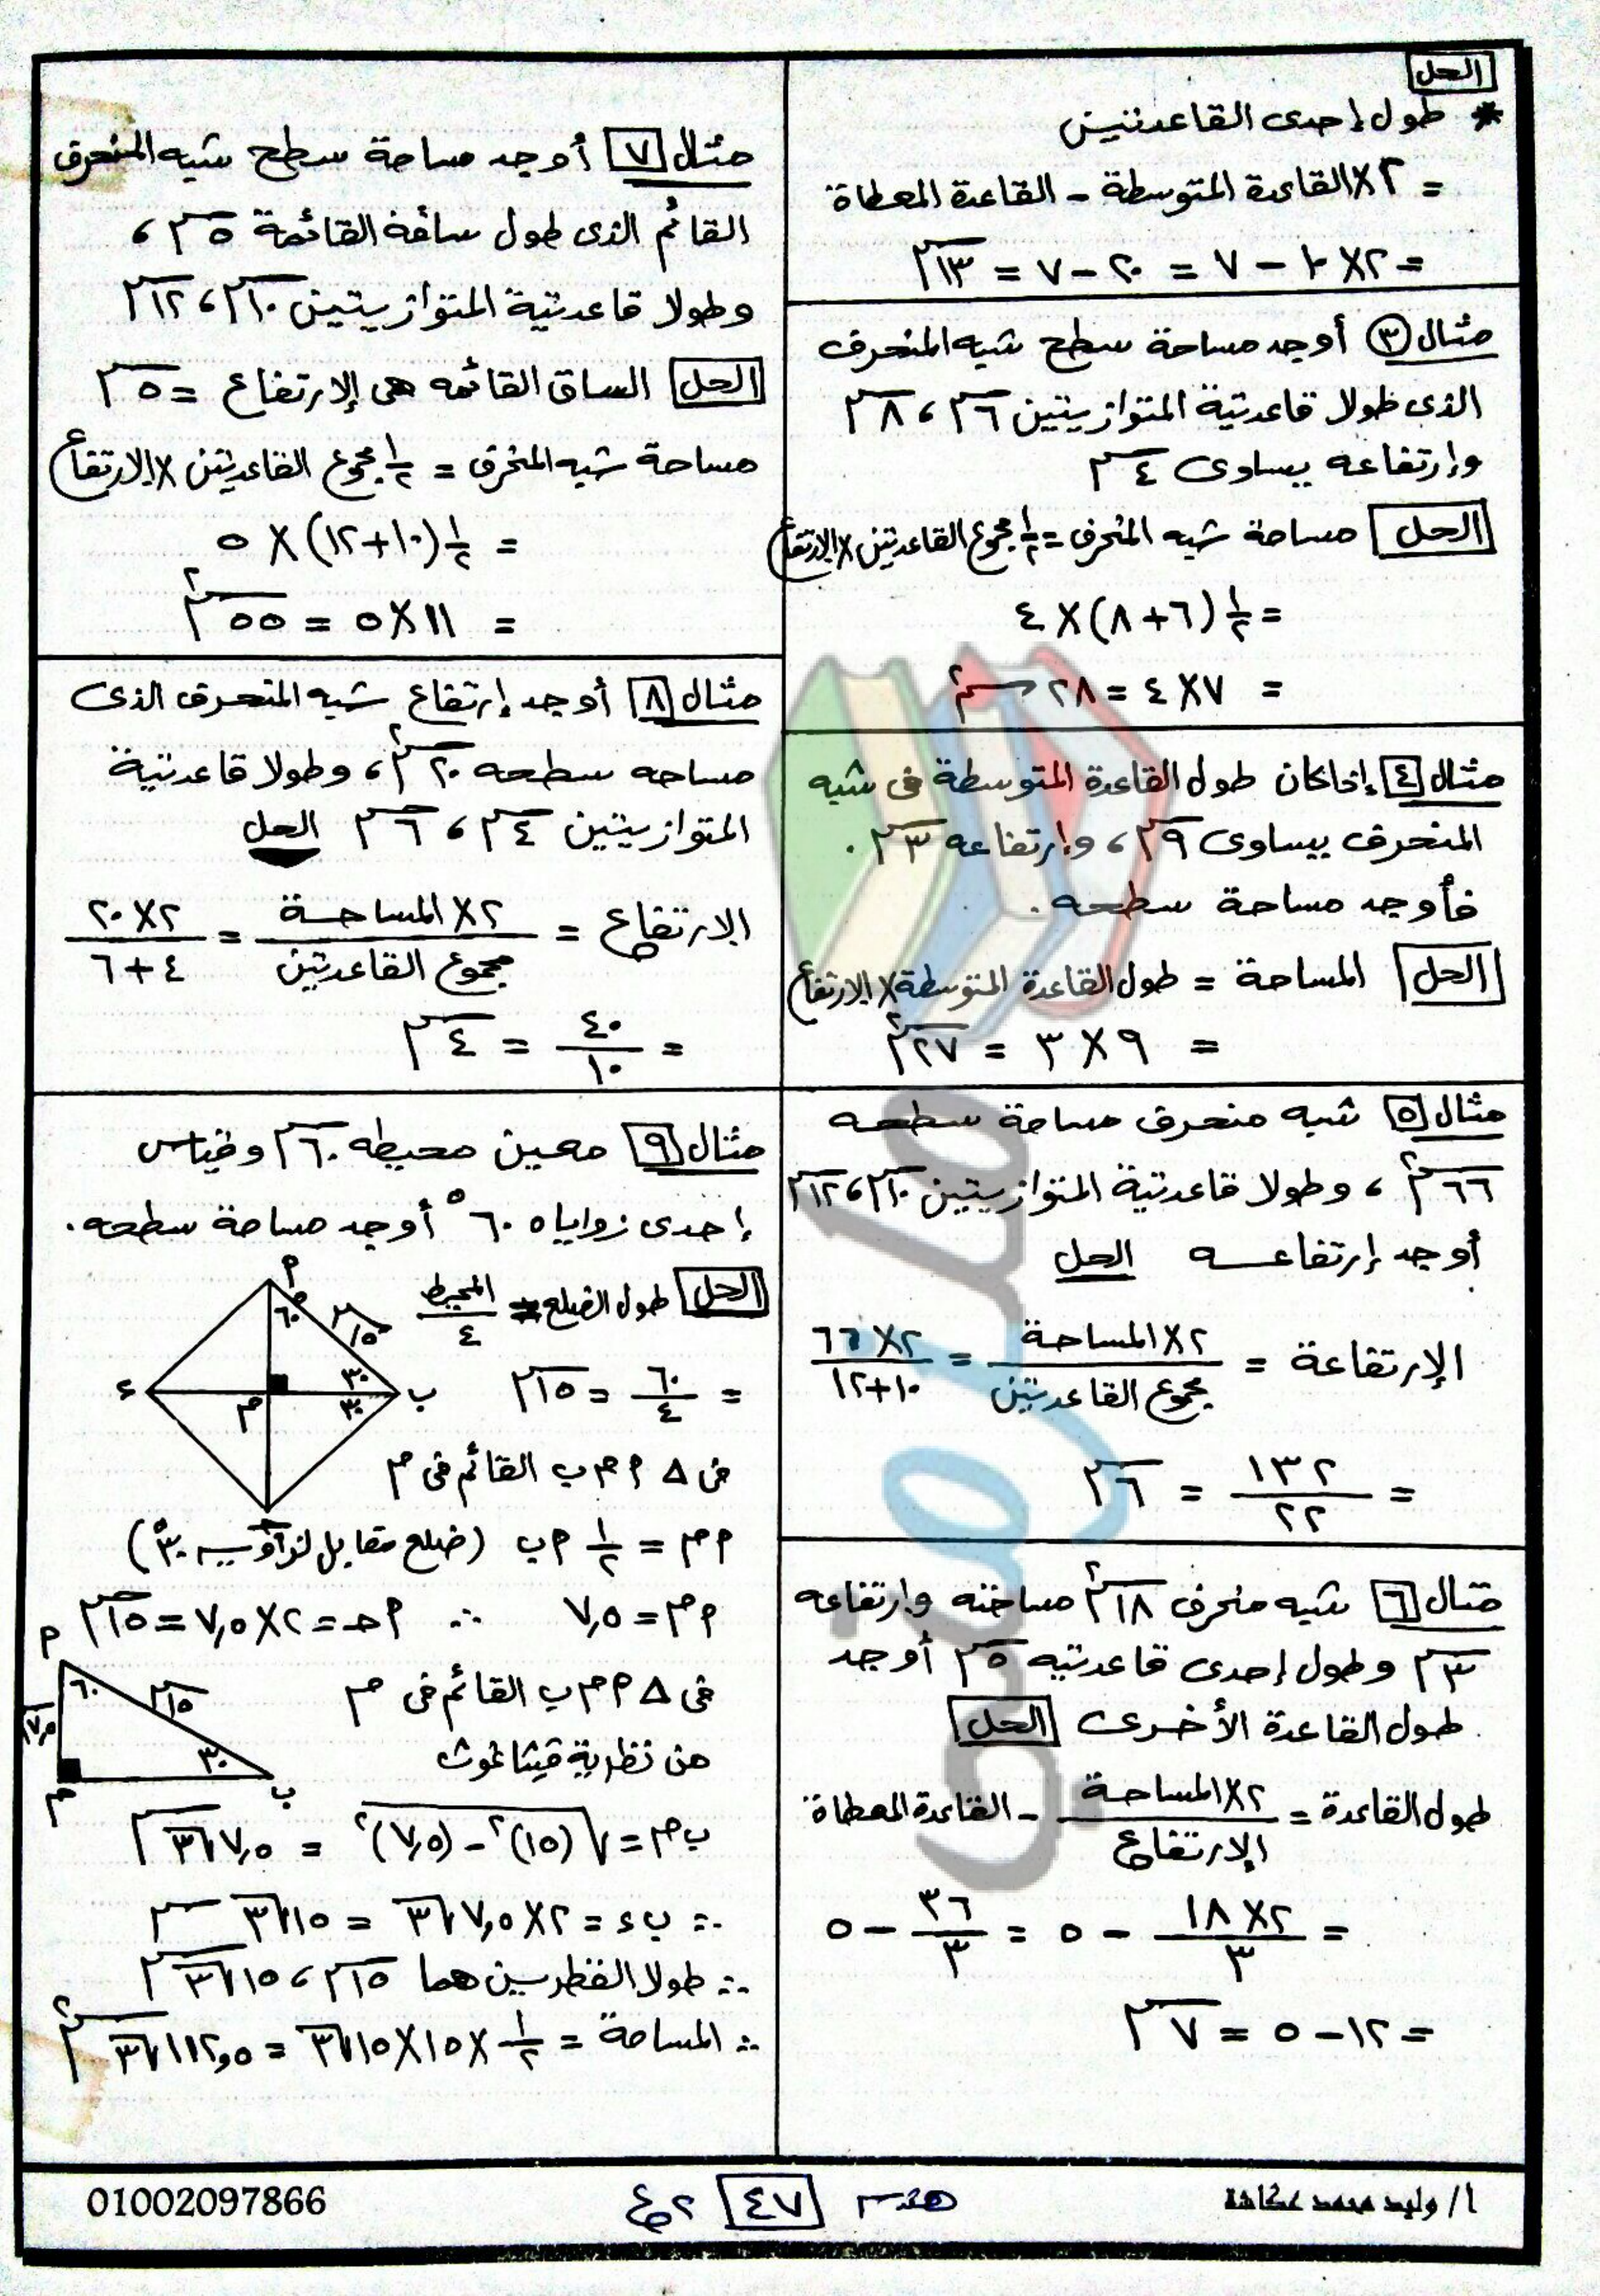 الحل
* طول إحدى القاعدتين
= ٢×القاعدة المتوسطة - القاعدة المعطاة
= ٢×١٠ - ٧ = ٢٠ - ٧ = ١٣ سم
مثال ٣ أوجد مساحة سطح شبه المنحرف
الذى طولا قاعدتية المتوازيتين ٦ سم ، ٨ سم
وإرتفاعه يساوى ٤ سم
الحل مساحة شبه المنحرف = ١/٢ مجموع القاعدتين × الارتفاع
= ١/٢ (٦+٨) × ٤
= ٧×٤ = ٢٨ سم٢
مثال ٤ إذا كان طول القاعدة المتوسطة فى شبه
المنحرف يساوى ٩ سم ، وإرتفاعه ٣ سم .
فأوجد مساحة سطحه .
الحل المساحة = طول القاعدة المتوسطة × الارتفاع
= ٩×٣ = ٢٧ سم٢
مثال ٥ شبه منحرف مساحة سطحه
٦٦ سم٢ ، وطولا قاعدتية المتوازيتين ١٠ سم ، ١٢ سم
أوجد إرتفاعه الحل
الإرتفاعة = ٢×المساحة / مجموع القاعدتين = ٢×٦٦ / ١٠+١٢
= ١٣٢ / ٢٢ = ٦ سم
مثال ٦ شبه منحرف ١٨ سم٢ مساحته وإرتفاعه
٣ سم وطول إحدى قاعدتيه ٥ سم أوجد
طول القاعدة الأخرى الحل
طول القاعدة = ٢×المساحة / الارتفاع - القاعدة المعطاة
= ٢×١٨ / ٣ - ٥ = ٣٦ / ٣ - ٥
= ١٢ - ٥ = ٧ سم
مثال ٧ أوجد مساحة سطح شبه المنحرف
القائم الذى طول ساقه القائمة ٥ سم ،
وطولا قاعدتية المتوازيتين ١٠ سم ، ١٢ سم
الحل الساق القائمه هى الإرتفاع = ٥ سم
مساحة شبه المنحرف = ١/٢ مجموع القاعدتين × الارتفاع
= ١/٢ (١٠+١٢) × ٥
= ١١×٥ = ٥٥ سم٢
مثال ٨ أوجد إرتفاع شبه المنحرف الذى
مساحه سطحه ٢٠ سم٢ ، وطولا قاعدتية
المتوازيتين ٤ سم ، ٦ سم الحل
الارتفاع = ٢×المساحة / مجموع القاعدتين = ٢×٢٠ / ٤+٦
= ٤٠ / ١٠ = ٤ سم
مثال ٩ معين محيطه ٦٠ سم وقياس
إحدى زواياه ٦٠° أوجد مساحة سطحه .
الحل طول الضلع = المحيط / ٤
= ٦٠ / ٤ = ١٥ سم
م
٦٠
١٥ سم
٣٠
٣٠
ب
ء
م
فى Δ م م ب القائم فى م
م م = ١/٢ م ب (ضلع مقابل لزاويه ٣٠°)
م م = ٧,٥ ∴ م حـ = ٢×٧,٥ = ١٥ سم
فى Δ م م ب القائم فى م
من نظرية فيثاغوث
م
٦٠
١٥ سم
٧,٥ سم
٣٠
م
ب
ب م = √(١٥)٢ - (٧,٥)٢ = ٧,٥√٣ سم
∴ ب ء = ٢×٧,٥√٣ = ١٥√٣ سم
∴ طولا القطرين هما ١٥ سم ، ١٥√٣ سم
∴ المساحة = ١/٢ × ١٥×١٥√٣ = ١١٢,٥√٣ سم٢
أ/ وليد محمد عكاشة
هندسة ٤٧ ٢ع
01002097866